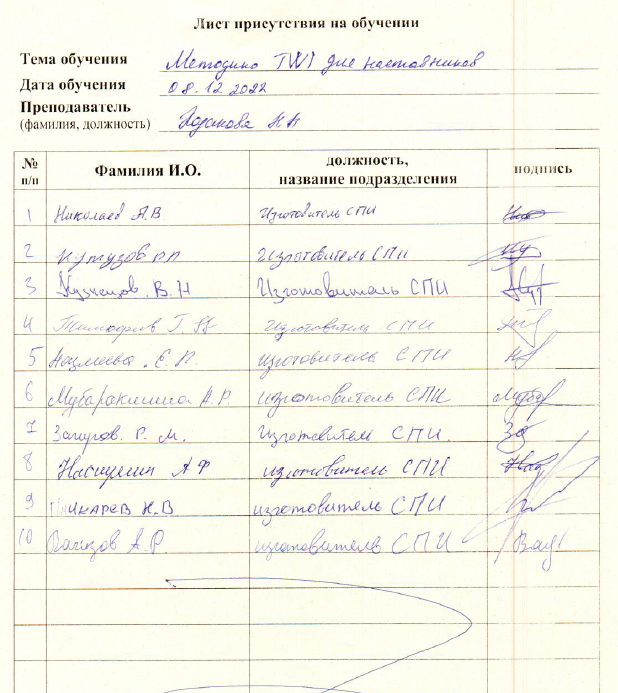 Лист присутствия на обучении
Тема обучения Методика TWI для наставников
Дата обучения 08.12.2022
Преподаватель
(фамилия, должность) Н Н
№ п/п Фамилия И.О. должность, название подразделения подпись
1 Николаев А.В Изготовитель СПИ
2 Кутузов Р.Р Изготовитель СПИ
3 Кузнецов В.Н Изготовитель СПИ
4 Тимофеев Г. Изготовитель СПИ
5 изготовитель СПИ
6 Мубаракшина А.Р. изготовитель СПИ
7 Загиров. Р. М. Изготовител СПИ.
8 А Ф изготовитель СПИ
9 Н.В изготовитель СПИ
10 А.Р. изготовитель СПИ